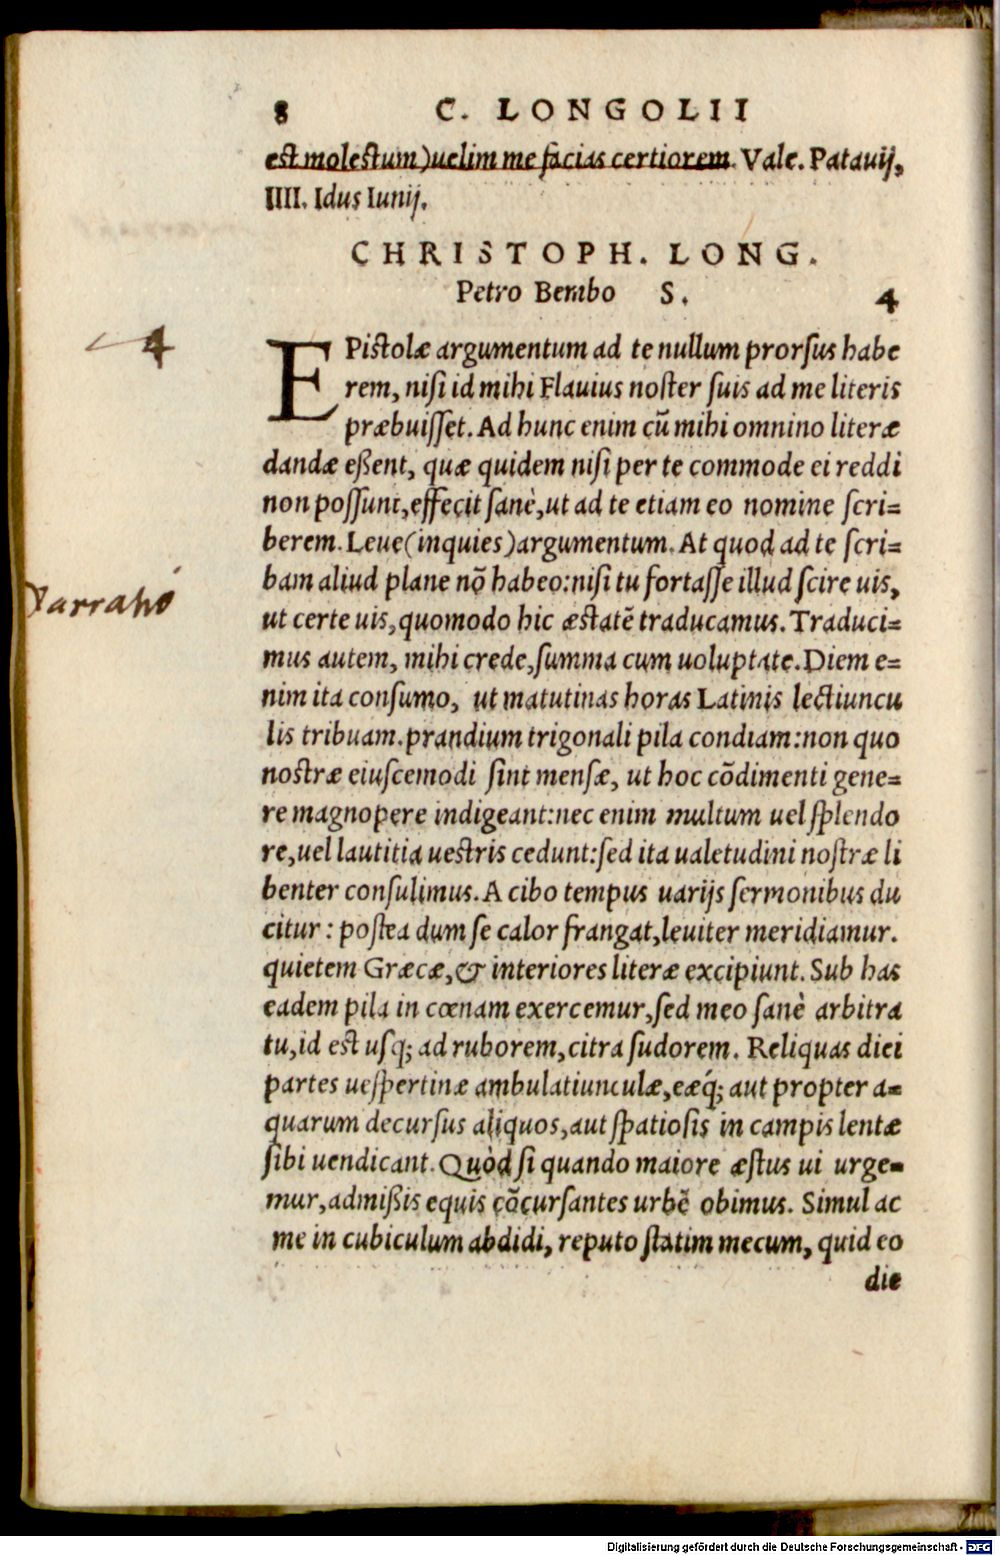 8 C. LONGOLII
est molestum) uelim me facias certiorem. Vale. Patauij,
IIII. Idus Iunij.
CHRISTOPH. LONG.
Petro Bembo S. 4
4
EPistolæ argumentum ad te nullum prorsus habe
rem, nisi id mihi Flauius noster suis ad me literis
præbuisset. Ad hunc enim cū mihi omnino literæ
dandæ eßent, quæ quidem nisi per te commode ei reddi
non possunt, effecit sanè, ut ad te etiam eo nomine scri=
berem. Leue (inquies) argumentum. At quod ad te scri=
bam aliud plane nō habeo: nisi tu fortasse illud scire uis,
Narratió
ut certe uis, quomodo hic æstatē traducamus. Traduci=
mus autem, mihi crede, summa cum uoluptate. Diem e=
nim ita consumo, ut matutinas horas Latinis lectiuncu
lis tribuam. prandium trigonali pila condiam: non quo
nostræ eiuscemodi sint mensæ, ut hoc cōdimenti gene=
re magnopere indigeant: nec enim multum uel splendo
re, uel lautitia uestris cedunt: sed ita ualetudini nostræ li
benter consulimus. A cibo tempus uarijs sermonibus du
citur: postea dum se calor frangat, leuiter meridiamur.
quietem Græcæ, & interiores literæ excipiunt. Sub has
eadem pila in cœnam exercemur, sed meo sanè arbitra
tu, id est usq; ad ruborem, citra sudorem. Reliquas diei
partes uespertinæ ambulatiunculæ, eæq́; aut propter a=
quarum decursus aliquos, aut spatiosis in campis lentæ
sibi uendicant. Quòd si quando maiore æstus ui urge=
mur, admißis equis cōcursantes urbē obimus. Simul ac
me in cubiculum abdidi, reputo statim mecum, quid eo
die
Digitalisierung gefördert durch die Deutsche Forschungsgemeinschaft - DFG